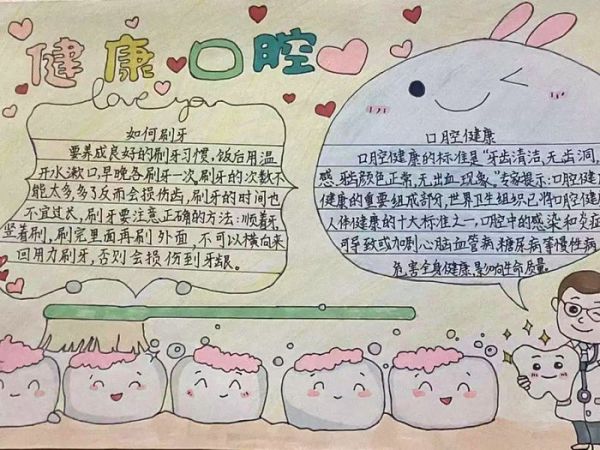 健康口腔
love you
如何刷牙
要养成良好的刷牙习惯,饭后用温
开水漱口,早晚各刷牙一次,刷牙的次数不
能太多,多了反而会损伤齿,刷牙的时间也
不宜过长,刷牙要注意正确的方法:顺着牙
竖着刷,刷完里面再刷外面,不可以横向来
回用力刷牙,否则会损伤到牙龈。
口腔健康
口腔健康的标准是“牙齿清洁,无齿洞,
感,牙齿颜色正常,无出血现象。”专家提示:口腔健
健康的重要组成部分,世界卫生组织已将口腔健
人体健康的十大标准之一,口腔中的感染和炎症
可导致或加剧心脑血管病,糖尿病等慢性病
危害全身健康,影响生命质量。